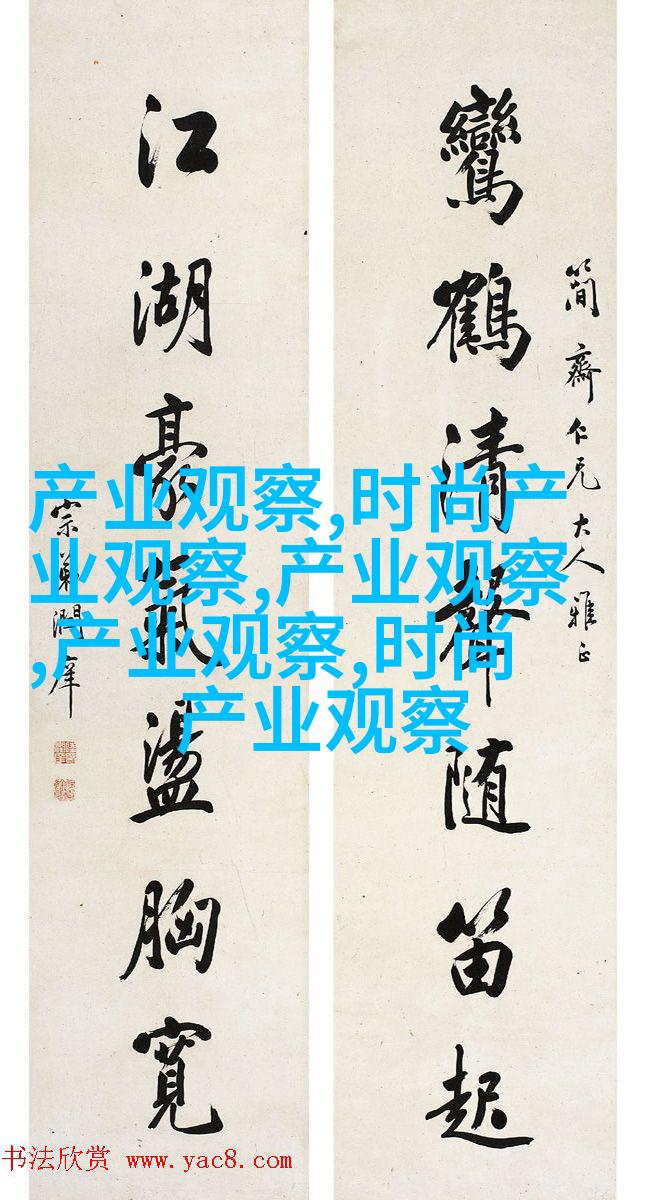 鸞鶴清聲随笛起
簡齋仁兄大人雅正
江湖豪氣盪胸寬
宗弟潤庠
产业观察,时尚产
业观察,产业观察
,产业观察,时尚
产业观察
书法欣赏 www.yac8.com